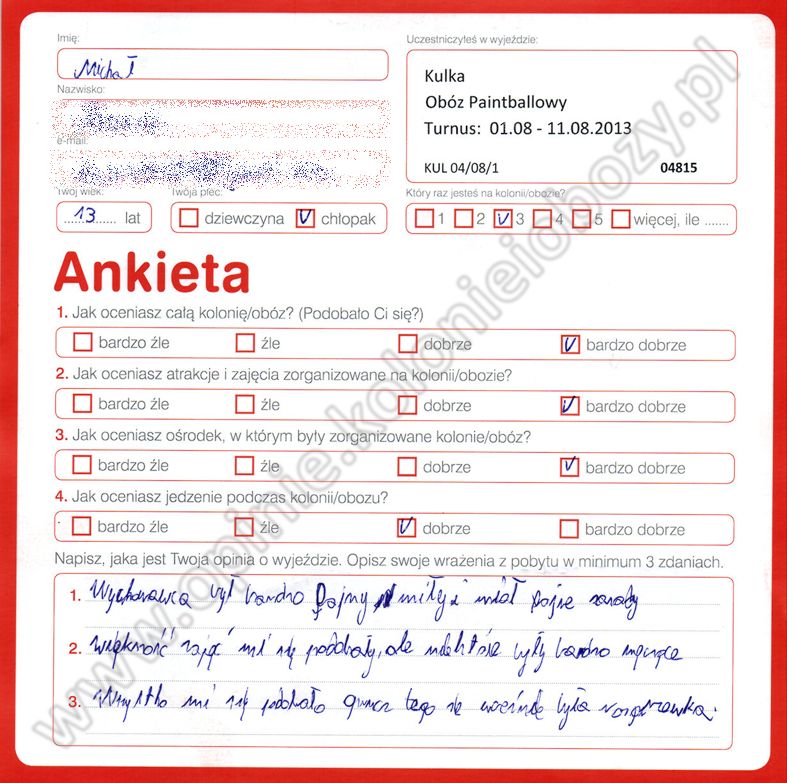 Imię:
Uczestniczyłeś w wyjeździe:
Michał
Kulka
Obóz Paintballowy
Turnus: 01.08 - 11.08.2013
KUL 04/08/1 04815
Nazwisko:
e-mail:
Twój wiek:
Twoja płeć:
Który raz jesteś na kolonii/obozie?
13 lat
dziewczyna V chłopak
1 2 V 3 4 5 więcej, ile .......
Ankieta
1. Jak oceniasz całą kolonię/obóz? (Podobało Ci się?)
bardzo źle źle dobrze V bardzo dobrze
2. Jak oceniasz atrakcje i zajęcia zorganizowane na kolonii/obozie?
bardzo źle źle dobrze V bardzo dobrze
3. Jak oceniasz ośrodek, w którym były zorganizowane kolonie/obóz?
bardzo źle źle dobrze V bardzo dobrze
4. Jak oceniasz jedzenie podczas kolonii/obozu?
bardzo źle źle V dobrze bardzo dobrze
Napisz, jaka jest Twoja opinia o wyjeździe. Opisz swoje wrażenia z pobytu w minimum 3 zdaniach.
1. Wychowawca był bardzo fajny miły i miał fajne zasady
2. większość zajęć mi się podobały, ale niektóre były bardzo męczące
3. Wszystko mi się podobało tego że była rozgrzewka.
www.opinie.kolonieiobozy.pl